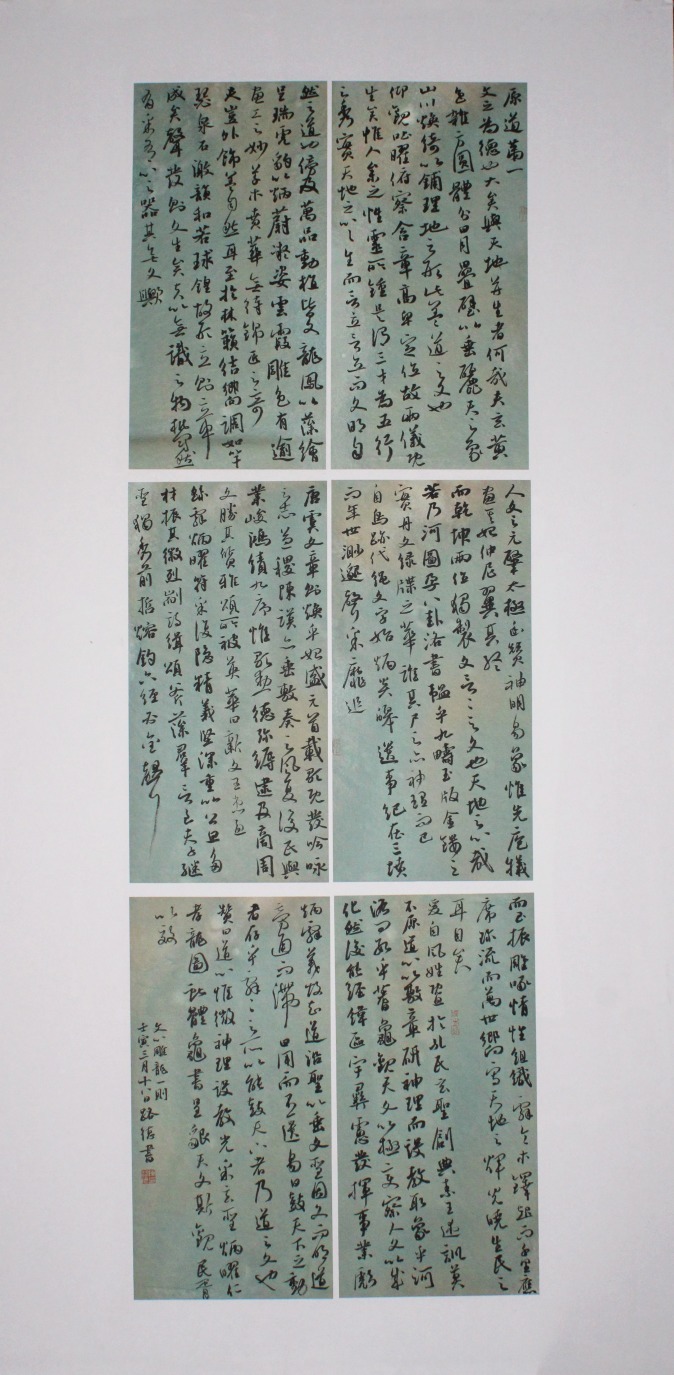 原道第一
文之為德也大矣與天地並生者何哉夫玄黃
色雜方圓體分日月疊璧以垂麗天之象
山川煥綺以鋪理地之形此蓋道之文也
仰觀吐曜俯察含章高卑定位故兩儀既
生矣惟人參之性靈所鍾是謂三才為五行
之秀實天地之心生而言立言立而文明自
然之道也傍及萬品動植皆文龍鳳以藻繪
呈瑞虎豹以炳蔚凝姿雲霞雕色有逾
畫工之妙草木賁華無待錦匠之奇
夫豈外飾蓋自然耳至於林籟結響調如竽
瑟泉石激韻和若球鍠故形立則章
成矣聲發則文生矣夫以無識之物鬱然
有采有心之器其無文歟
人文之元肇太極幽贊神明易象惟先庖犧
畫其始仲尼翼其終
而乾坤兩位獨製文言言之文也天地之心哉
若乃河圖孕八卦洛書韞乎九疇玉版金鏤之
實丹文綠牒之華誰其尸之亦神理而已
自鳥跡代繩文字始炳炎皞遺事紀在三墳
而年世渺邈聲采靡追
唐虞文章則煥乎始盛元首載歌既發吟咏
之志益稷陳謨亦垂敷奏之風夏后氏興
業峻鴻績九序惟歌勳德彌縟逮及商周
文勝其質雅頌所被英華日新文王患憂
繇辭炳曜符采復隱精義堅深重以公旦多
材振其徽烈剬詩緝頌斧藻羣言至夫子繼
聖獨秀前哲熔鈞六經必金聲
而玉振雕琢情性組織辭令木鐸起而千里應
席珍流而萬世響寫天地之輝光曉生民之
耳目矣
爰自風姓暨於孔氏玄聖創典素王述訓莫
不原道心以敷章研神理而設教取象乎河
洛問數乎蓍龜觀天文以極變察人文以成
化然後能經緯區宇彝憲發揮事業彪
炳辭義故知道沿聖以垂文聖因文而明道
旁通而無滯日用而不匱易曰鼓天下之動
者存乎辭辭之所以能鼓天下者乃道之文也
贊曰道心惟微神理設教光采玄聖炳曜仁
孝龍圖獻體龜書呈貌天文斯觀民胥
以效
文心雕龍一則
壬寅三月十八 書